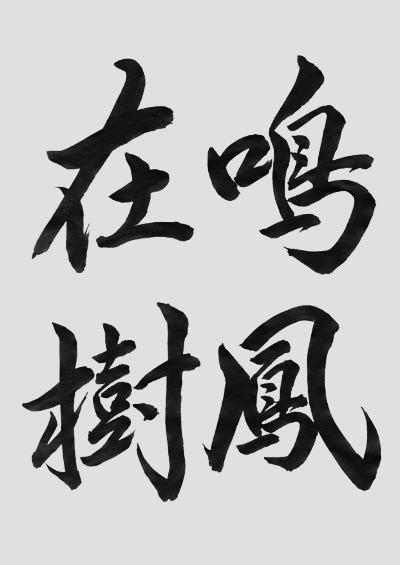 鳴鳳
在樹